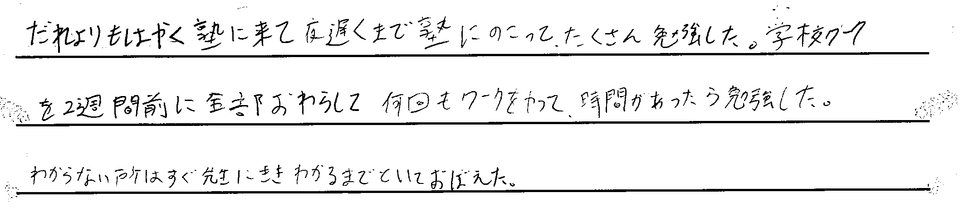 だれよりもはやく塾に来て夜遅くまで塾にのこって、たくさん勉強した。学校ワーク
を2週間前に全部おわらして何回もワークをやって、時間があったら勉強した。
わからない所はすぐ先生にききわかるまでといておぼえた。